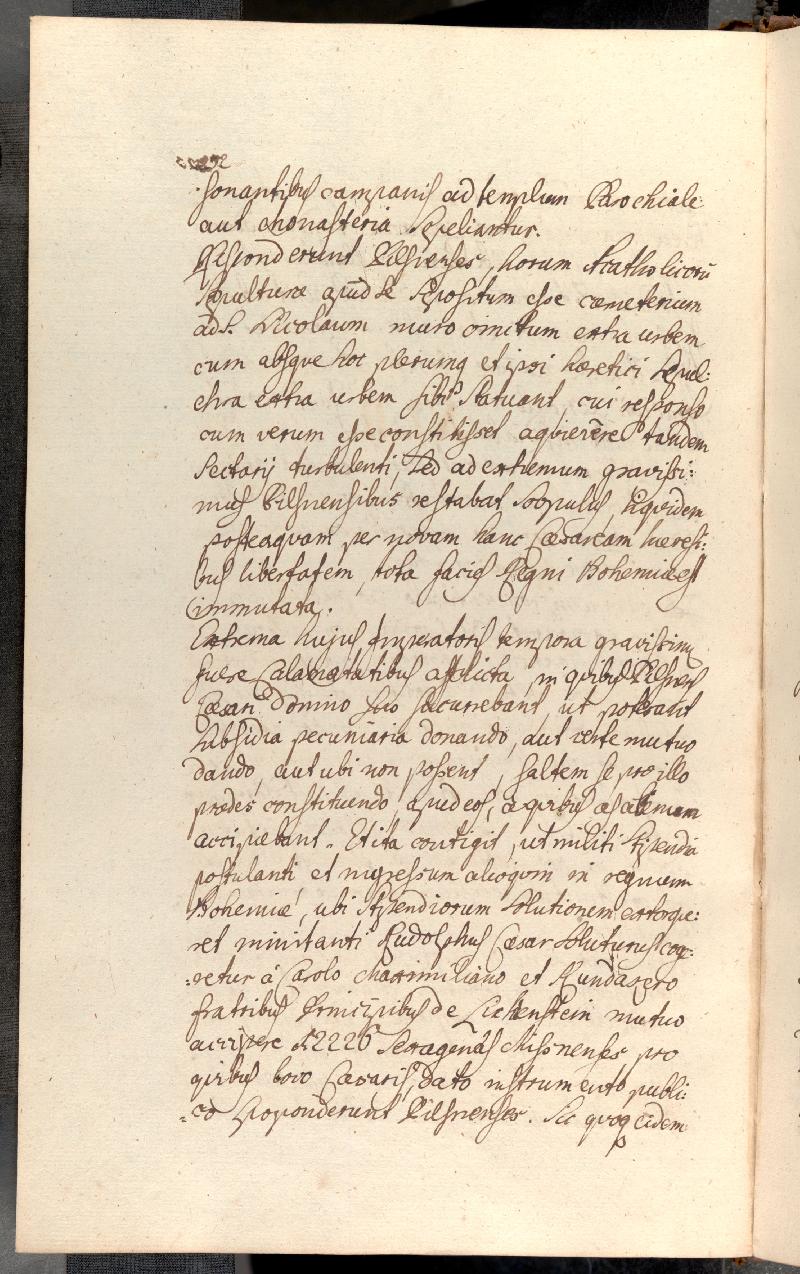 sonantibus campanis ad templum Parochiale
aut Monasteria Sepeliantur.
Responderunt Pilsnenses, horum Acatholicorū
Sepulturæ apud se Sepositum esse cœmeterium
ad S. Nicolaum muro cinctum extra urbem
cum absque hoc plerumq et ipsi hæretici Sepul:
chra extra urbem sibi Statuant, cui responso
cum verum esse constitisset acquievêre tandem
Sectarij turbulenti, Sed ad extremum gravissi:
mus Pilsnensibus restabat Scopulus, siquidem
posteaquam per novam hanc Cæsaream hæresi:
bus libertatem, tota facies Regni Bohemiæ est
immutata.
Extrema hujus Imperatoris tempora gravissimis
fuere Calamitatibus afflicta, in quibus Pilsnens
Cæsari Domino suo succurrebant, ut poterant
Subsidia pecuniaria donando, aut certe mutuo
dando, aut ubi non possent, saltem se pro illo
prædes constituendo, apud eos, a quibus æs alienum
accipiebant. Et ita contigit, ut militi Stipendia
postulanti et ingressum alioquin in regnum
Bohemiæ, ubi Stipendiorum Solutionem extorque:
ret minitanti Rudolphus Cæsar Soluturus cog:
:eretur á Carolo Maximiliano et Kundagero
fratribus Principibus de Lichenstein mutuo
accipere 12226 Sexagenas Misnenses, pro
quibus loco Cæsaris, dato instrumento publi:
:co Spoponderunt Pilsnenses. Sic quoq eidem